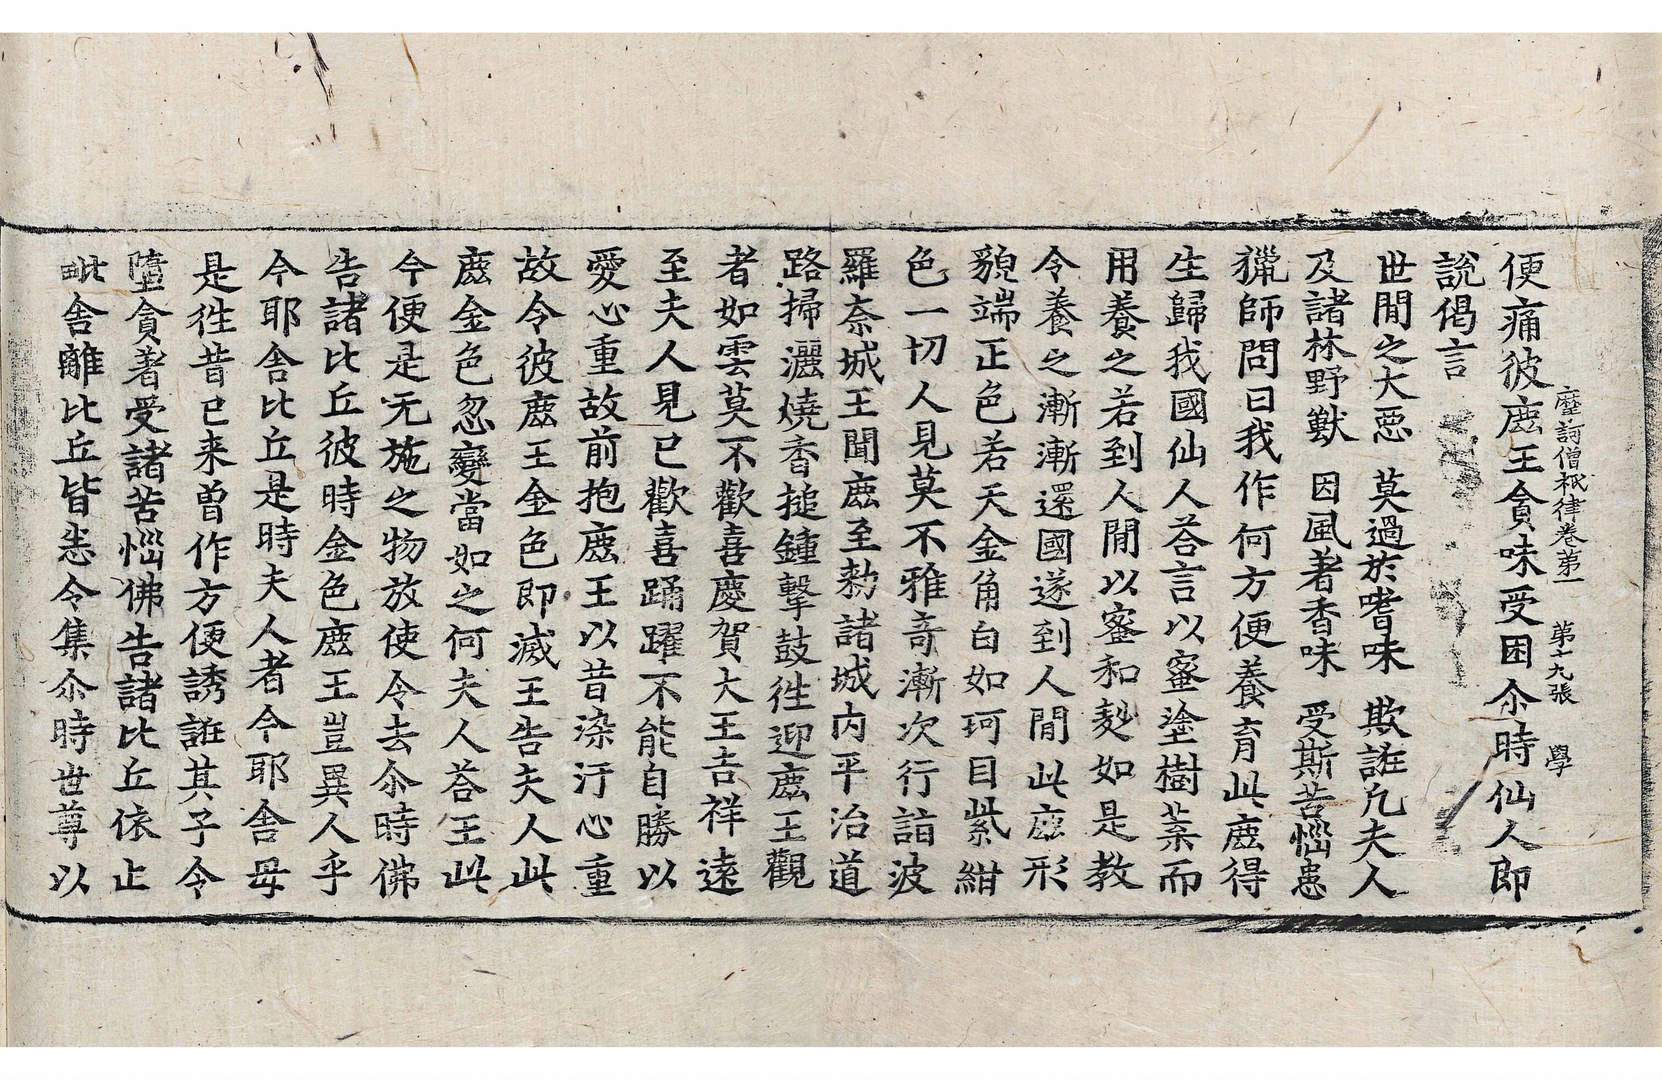 摩訶僧祇律卷第一 第十九張 學
便痛彼鹿王貪味受困尒時仙人即
說偈言
世間之大惡 莫過於嗜味 欺誑凡夫人
及諸林野獸 因風著香味 受斯苦惱患
獵師問曰我作何方便養育此鹿得
生歸我國仙人荅言以蜜塗樹葉而
用養之若到人間以蜜和麨如是教
令養之漸漸還國遂到人間此鹿形
貌端正色若天金角白如珂目紫紺
色一切人見莫不雅奇漸次行詣波
羅奈城王聞鹿至勑諸城内平治道
路掃灑燒香搥鍾擊鼓徃迎鹿王觀
者如雲莫不歡喜慶賀大王吉祥遠
至夫人見已歡喜踊躍不能自勝以
愛心重故前抱鹿王以昔染汙心重
故令彼鹿王金色即滅王告夫人此
鹿金色忽變當如之何夫人荅王此
今便是无施之物放使令去尒時佛
告諸比丘彼時金色鹿王豈異人乎
今耶舍比丘是時夫人者今耶舍母
是徃昔已来曽作方便誘誑其子令
墮貪著受諸苦惱佛告諸比丘依止
毗舍離比丘皆悉令集尒時世尊以